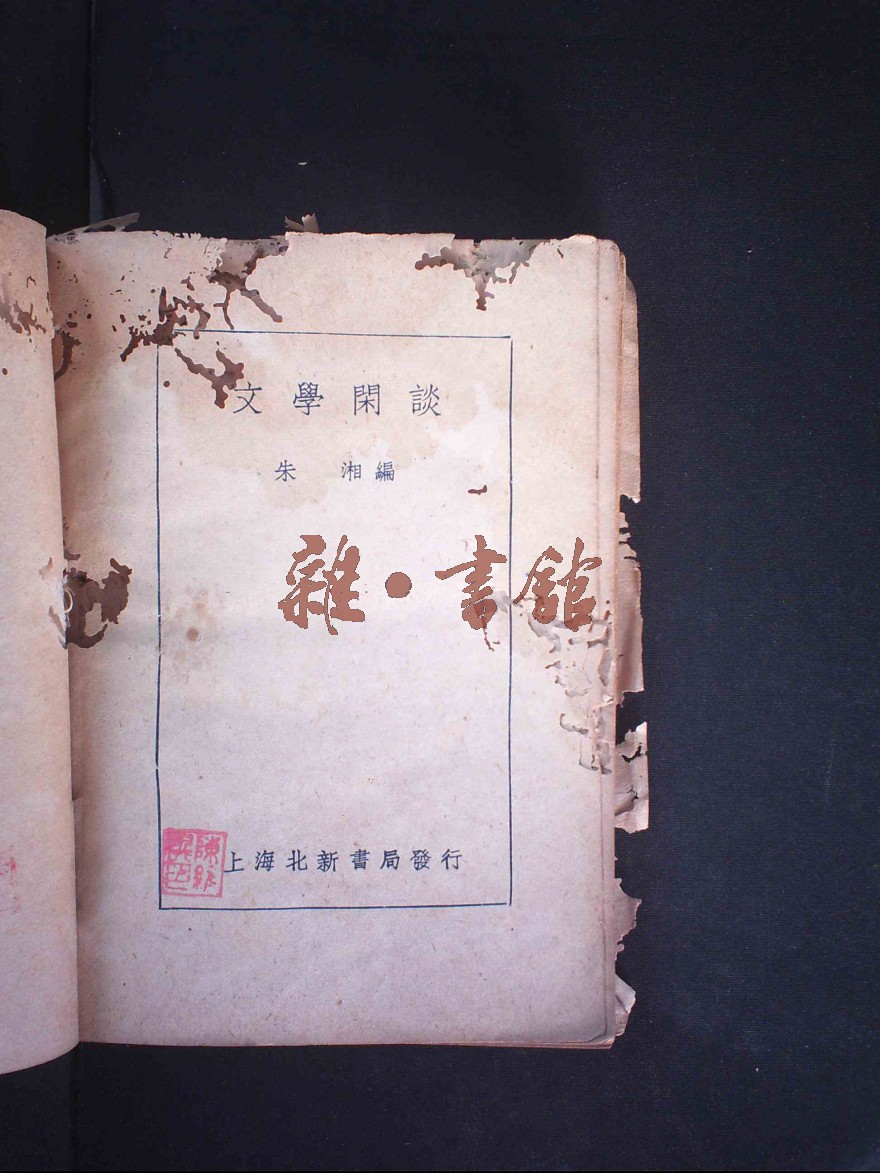 文學閑談
朱 湘編
雜·書館
上海北新書局發行